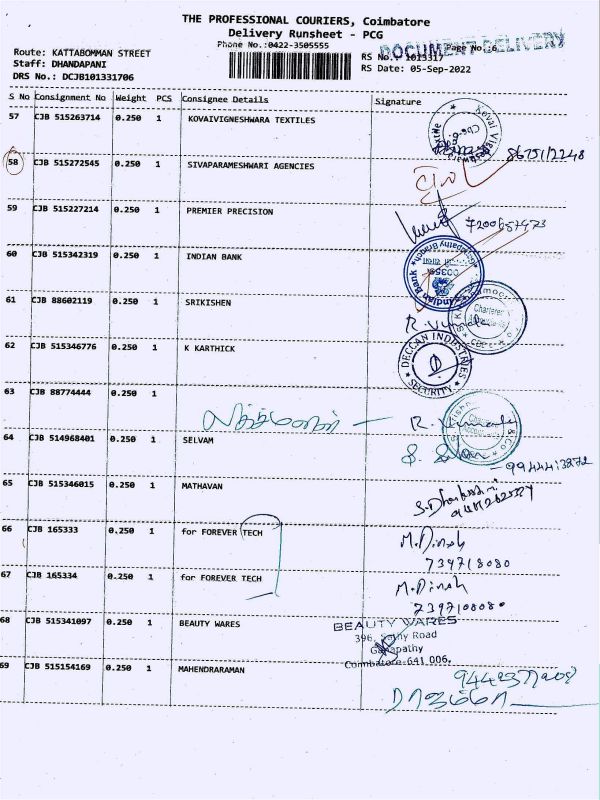 THE PROFESSIONAL COURIERS, Coimbatore
Delivery Runsheet - PCG
Phone No.:0422-3505555
Page No.:6
DOCUMENT DELIVERY
Route: KATTABOMMAN STREET
RS No.: 1013317
Staff: DHANDAPANI
RS Date: 05-Sep-2022
DRS No.: DCJB101331706
S No Consignment No Weight PCS Consignee Details Signature
57 CJB 515263714 0.250 1 KOVAIVIGNESHWARA TEXTILES
58 CJB 515272545 0.250 1 SIVAPARAMESHWARI AGENCIES
59 CJB 515227214 0.250 1 PREMIER PRECISION
60 CJB 515342319 0.250 1 INDIAN BANK
Indian Bank
61 CJB 88602119 0.250 1 SRIKISHEN
62 CJB 515346776 0.250 1 K KARTHICK
DECCAN INDUSTRIES
SECURITY
63 CJB 88774444 0.250 1
64 CJB 514968401 0.250 1 SELVAM
65 CJB 515346015 0.250 1 MATHAVAN
66 CJB 165333 0.250 1 for FOREVER TECH M.Dinesh
739718080
67 CJB 165334 0.250 1 for FOREVER TECH M.Dinesh
68 CJB 515341097 0.250 1 BEAUTY WARES
BEAUTY WARES
396, Sathy Road
Ganapathy
Coimbatore-641 006.
69 CJB 515154169 0.250 1 MAHENDRARAMAN